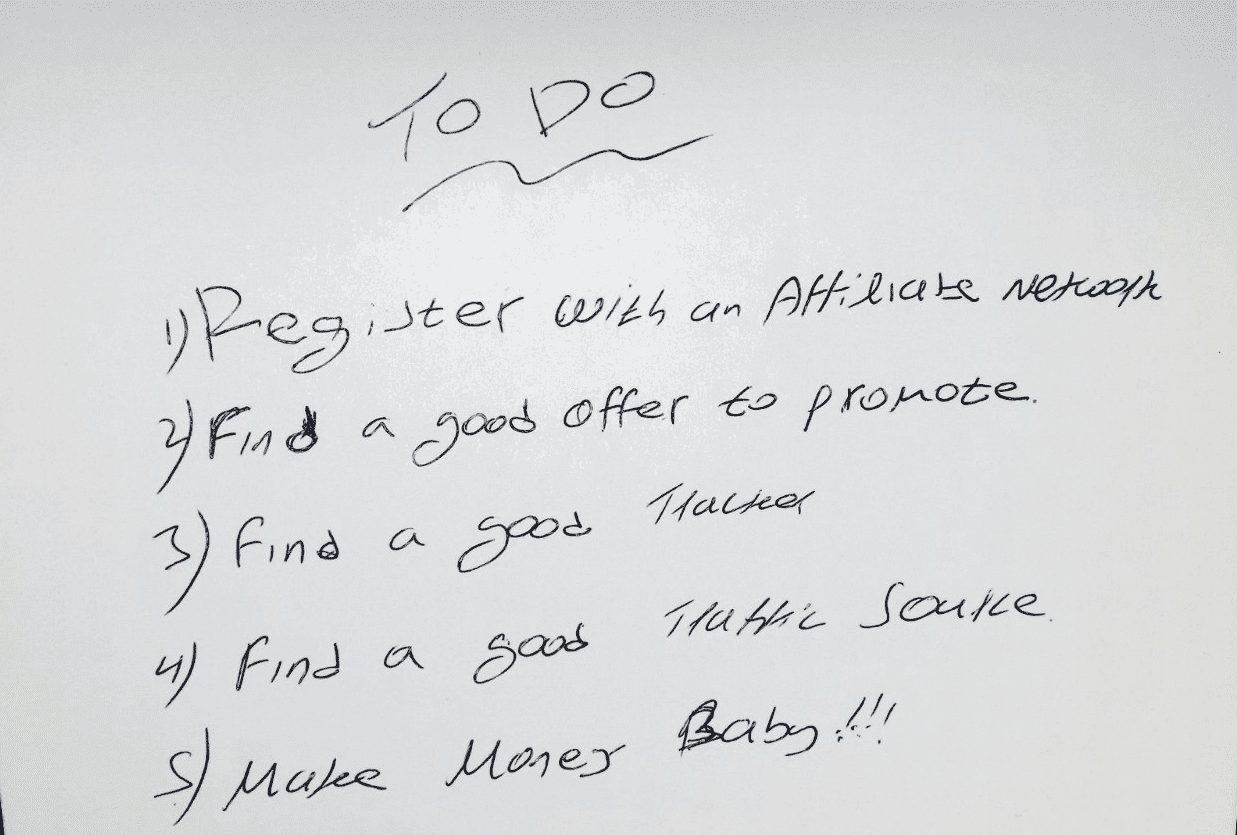 TO DO
1) Register with an Affiliate Network
2) Find a good offer to promote.
3) Find a good Tracker
4) Find a good Traffic Source.
5) Make Money Baby!!!